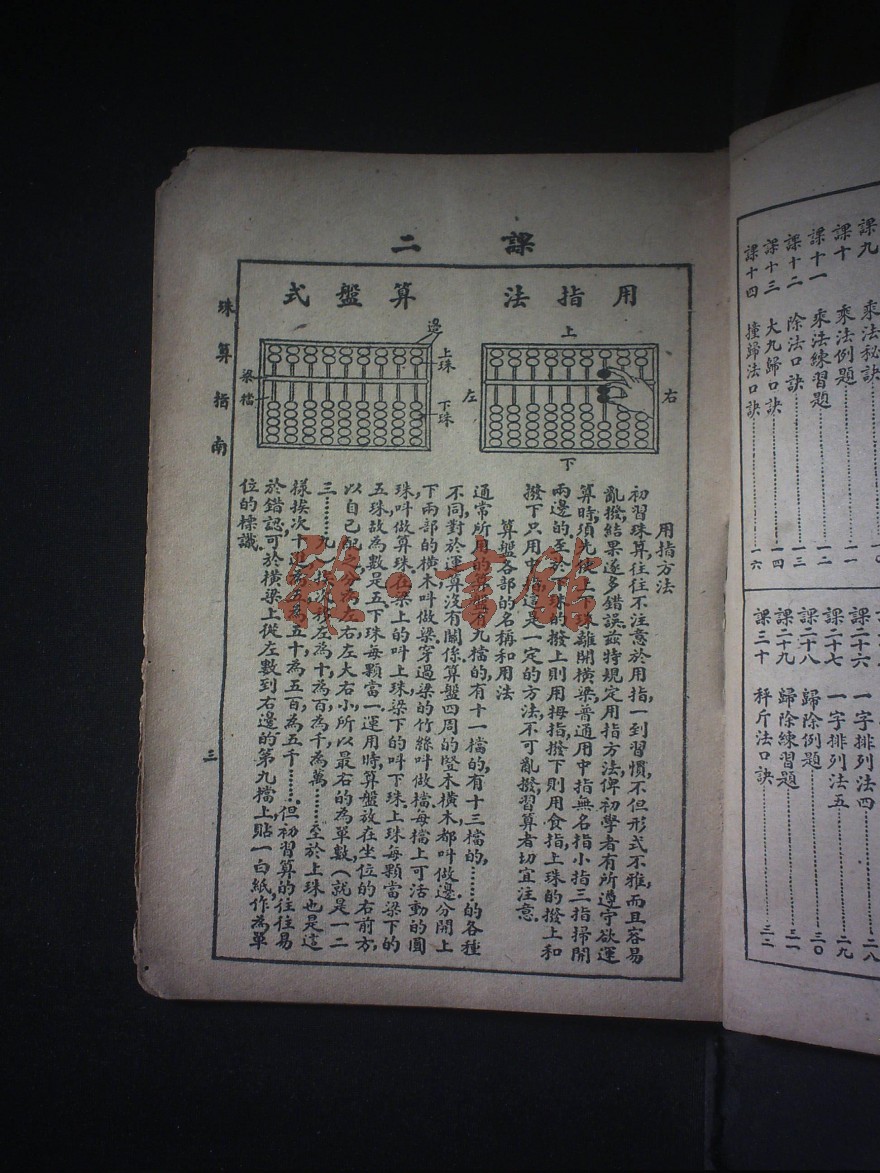 課二
用指法
算盤式
上
左
右
下
邊
上珠
梁
檔
下珠
用指方法
初習珠算,往往不注意於用指,一到習慣,不但形式不雅,而且容易
亂撥,結果遂多錯誤,茲特規定用指方法,俾初學者有所遵守,欲運
算時,須先使上下珠離開橫梁,普通用中指無名指小指三指掃開
兩邊的,至於下珠的撥上則用拇指,撥下則用食指,上珠的撥上和
撥下只用中指,這是一定的方法,不可亂撥,習算者切宜注意.
算盤各部的名稱和用法
通常所用的算盤有九檔的,有十一檔的,有十三檔的,……的各種
不同,對於運算沒有關係,算盤四周的豎木橫木都叫做邊,分開上
下兩部的橫木叫做梁,穿過梁的竹絲叫做檔,每檔上可活動的圓
珠叫做算珠,在梁上的叫上珠,梁下的叫下珠,上珠每顆當梁下的
五珠,故為數是五,下珠每顆當一,運用時,算盤放在坐位的右前方,
以自己配之,分為左右,左大右小,所以最右的為單數,(就是一二
三……九)
左為十,為百,為千,為萬,……至於上珠也是這
樣挨次十進,為五,為五十,為五百,為五千……但初習算的往往易
於錯認,可於橫梁上從左數到右邊的第九檔上貼一白紙,作為單
位的標識.
珠算指南
三
課九 乘法秘訣
課十 乘法例題……一一
課十一 乘法練習題……一二
課十二 除法口訣……一三
課十三 大九歸口訣……一四
課十四 撞歸法口訣……一六
課二十六 一字排列法四……二八
課二十七 一字排列法五……二九
課二十八 歸除例題……三〇
課二十九 歸除練習題……三一
課三十 秤斤法口訣……三三
雜·書館